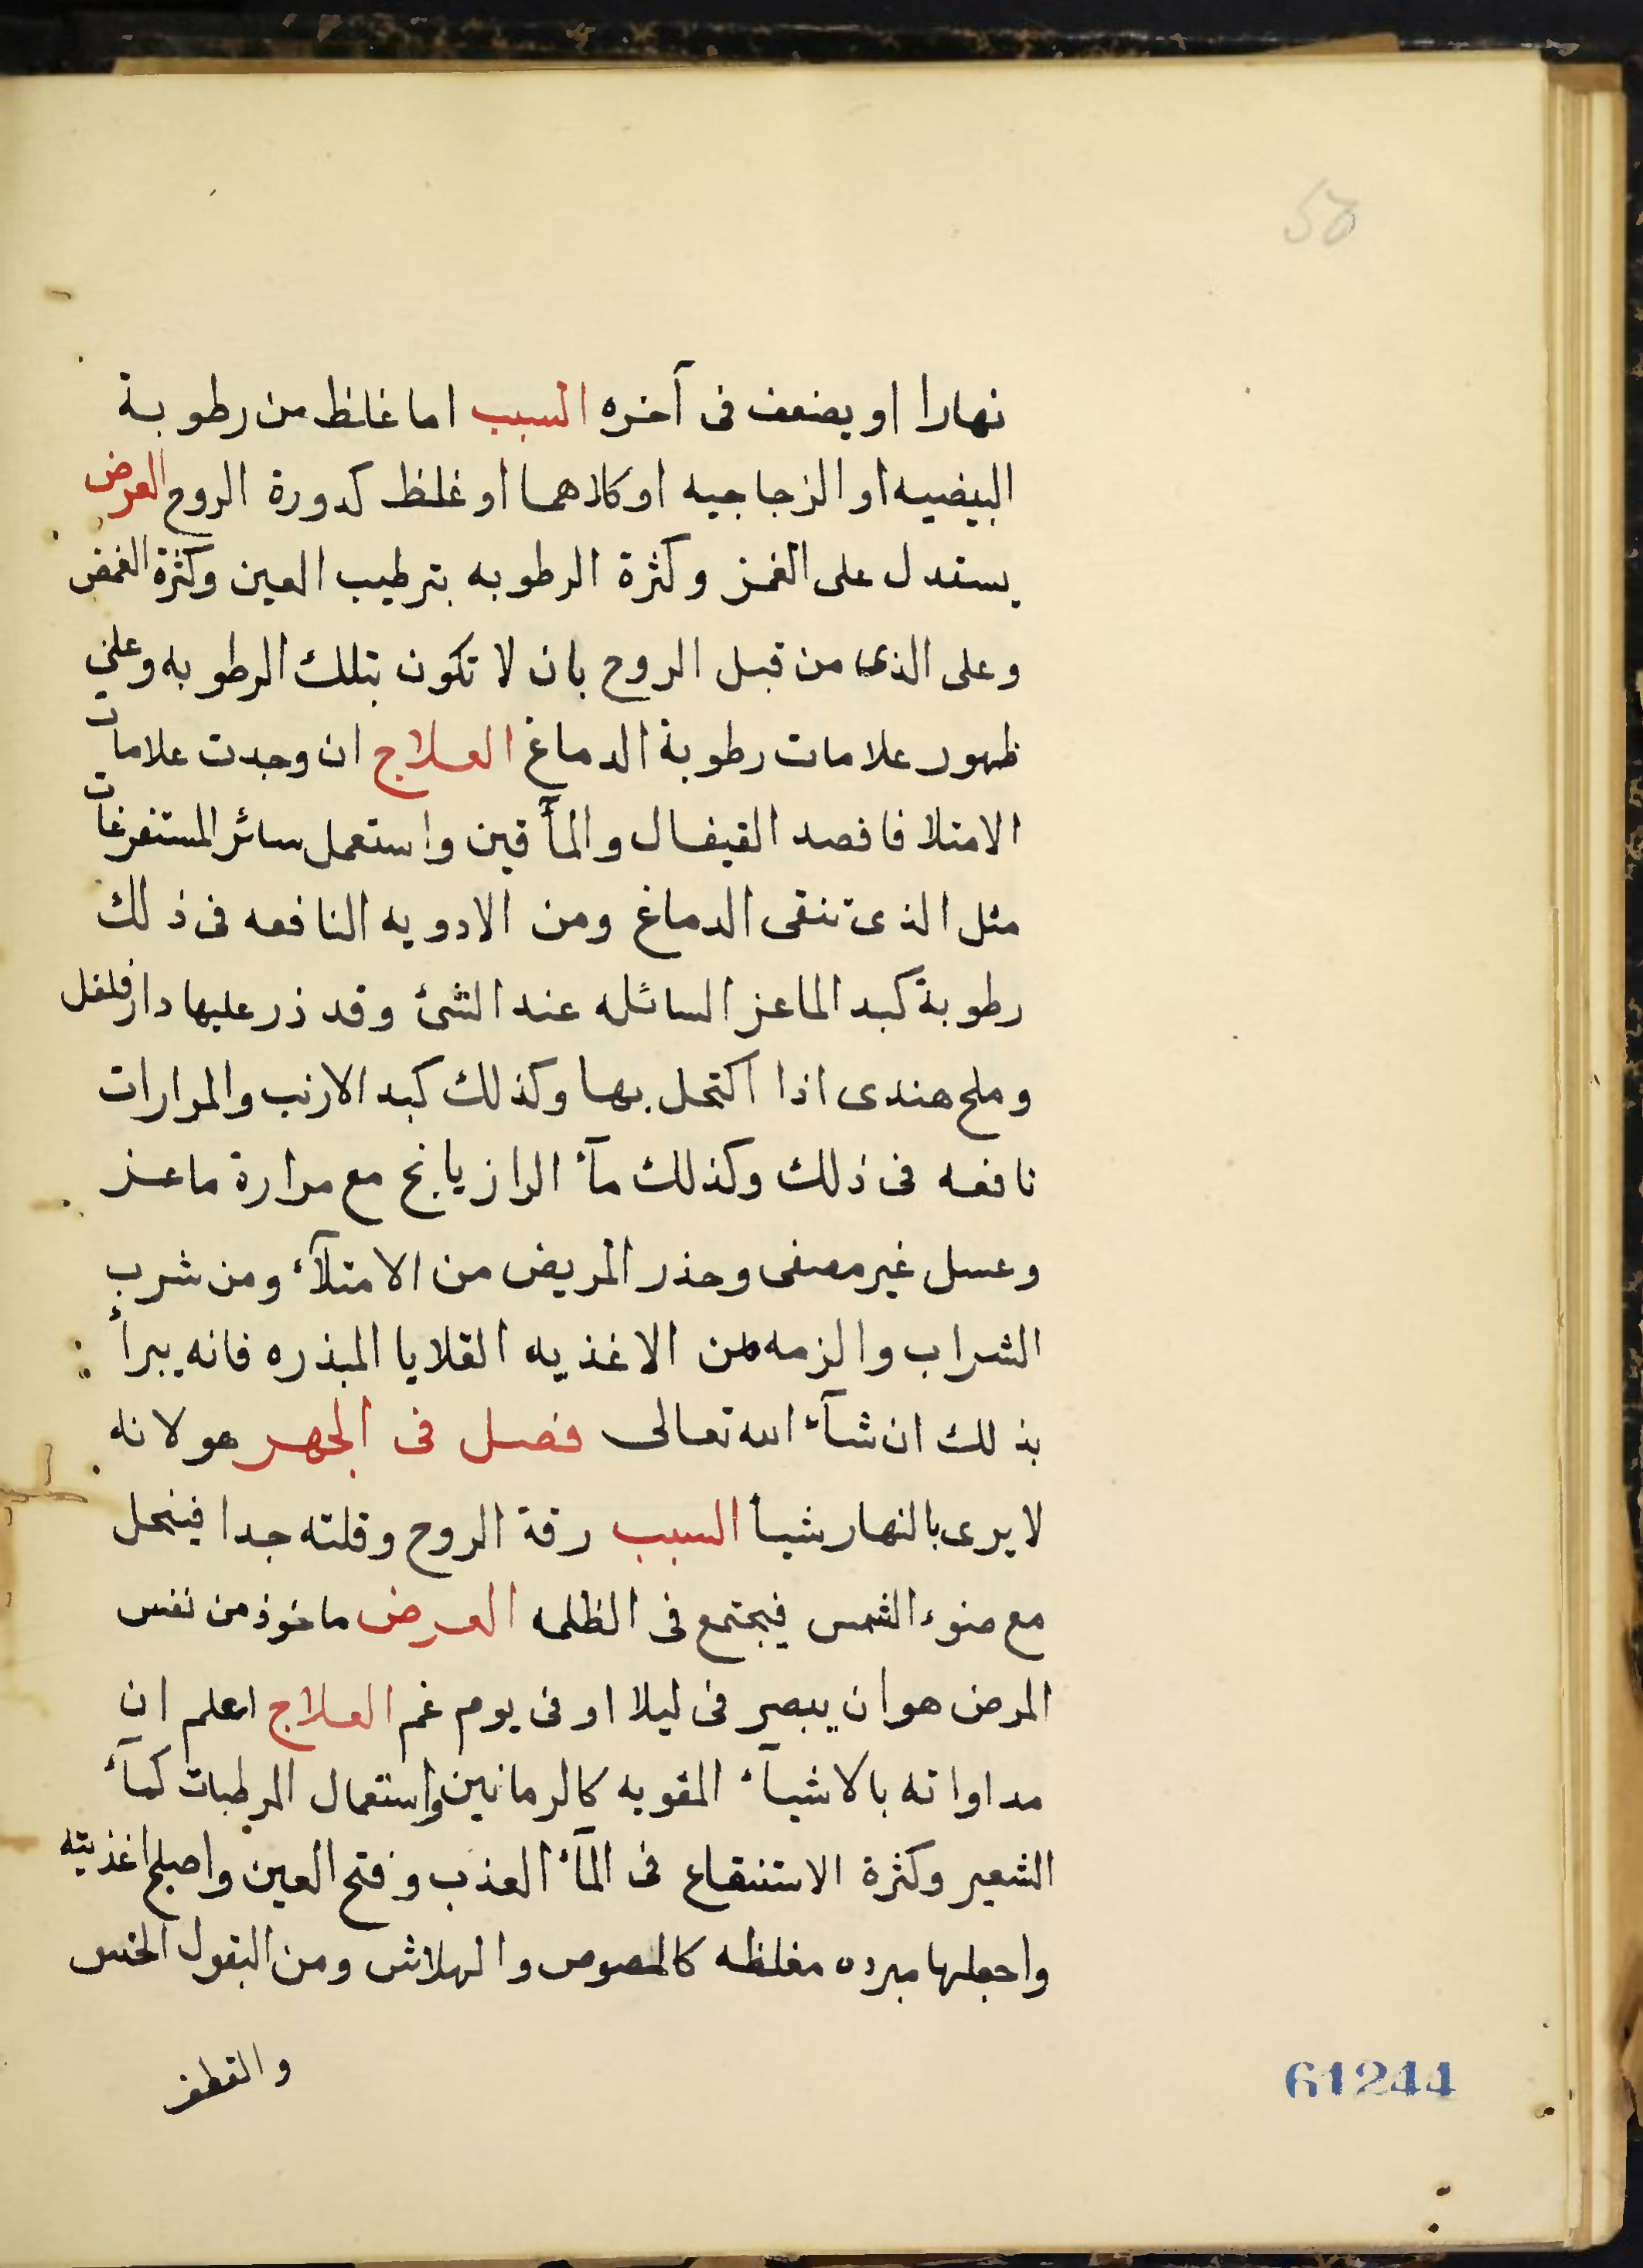 50
نهارا او يضعف فى آخره السبب اما غلظ من رطوبة
البيضيه او الزجاجيه او كلاهما او غلظ كدورة الروح العرض
يستدل على الغمز وكثرة الرطوبه بترطيب العين وكثرة الغمض
وعلى الذى من قبل الروح بان لا تكون بتلك الرطوبه وعلي
ظهور علامات رطوبة الدماغ العلاج ان وجدت علامات
الامتلا فافصد القيفال والمأقين واستعمل سائر المستفرغات
مثل الذى تنقى الدماغ ومن الادويه النافعه فى ذلك
رطوبة كبد الماعز السائله عند الشئ وقد ذر عليها دارفلفل
وملح هندى اذا اكتحل بها وكذلك كبد الارنب والمرارات
نافعه فى ذلك وكذلك مآء الرازيانج مع مرارة ماعز
وعسل غير مصفى وحذر المريض من الامتلآء ومن شرب
الشراب والزمه من الاغذيه القلايا المبذره فانه يبرأ
بذلك ان شآء الله تعالى فصل فى الجهر هو لانه
لا يرى بالنهار شيأ السبب رقة الروح وقلته جدا فينحل
مع ضوء الشمس فيجتمع فى الظلمه العرض ماخوذ من نفس
المرض هو ان يبصر فى ليلا او فى يوم غم العلاج اعلم ان
مداواته بالاشيآء المقويه كالرمانين واستعمال المرطبات كمآء
الشعير وكثرة الاستنقاع فى المآء العذب وفتح العين واصلح اغذيته
واجعلها مبرده مغلظه كالمصوص والهلاش ومن البقول الخس
والقطف
61244